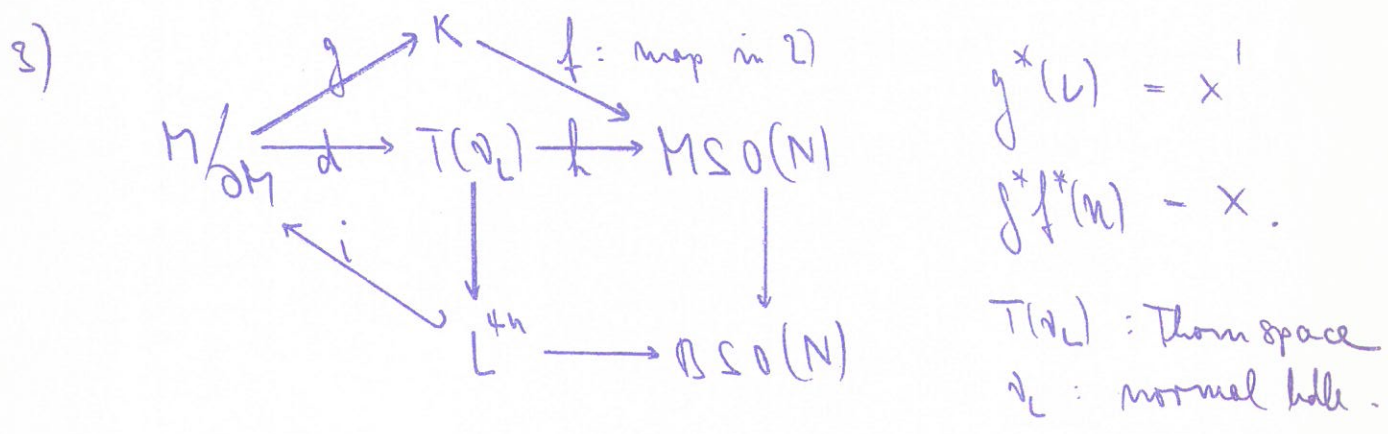 3)
g K f : map in 2)
M/∂M d T(ν_L) h MSO(N)
i
L^{4n} BSO(N)
g^*(ι) = x'
g^*f^*(u) = x.
T(ν_L) : Thom space
ν_L : normal bdle.